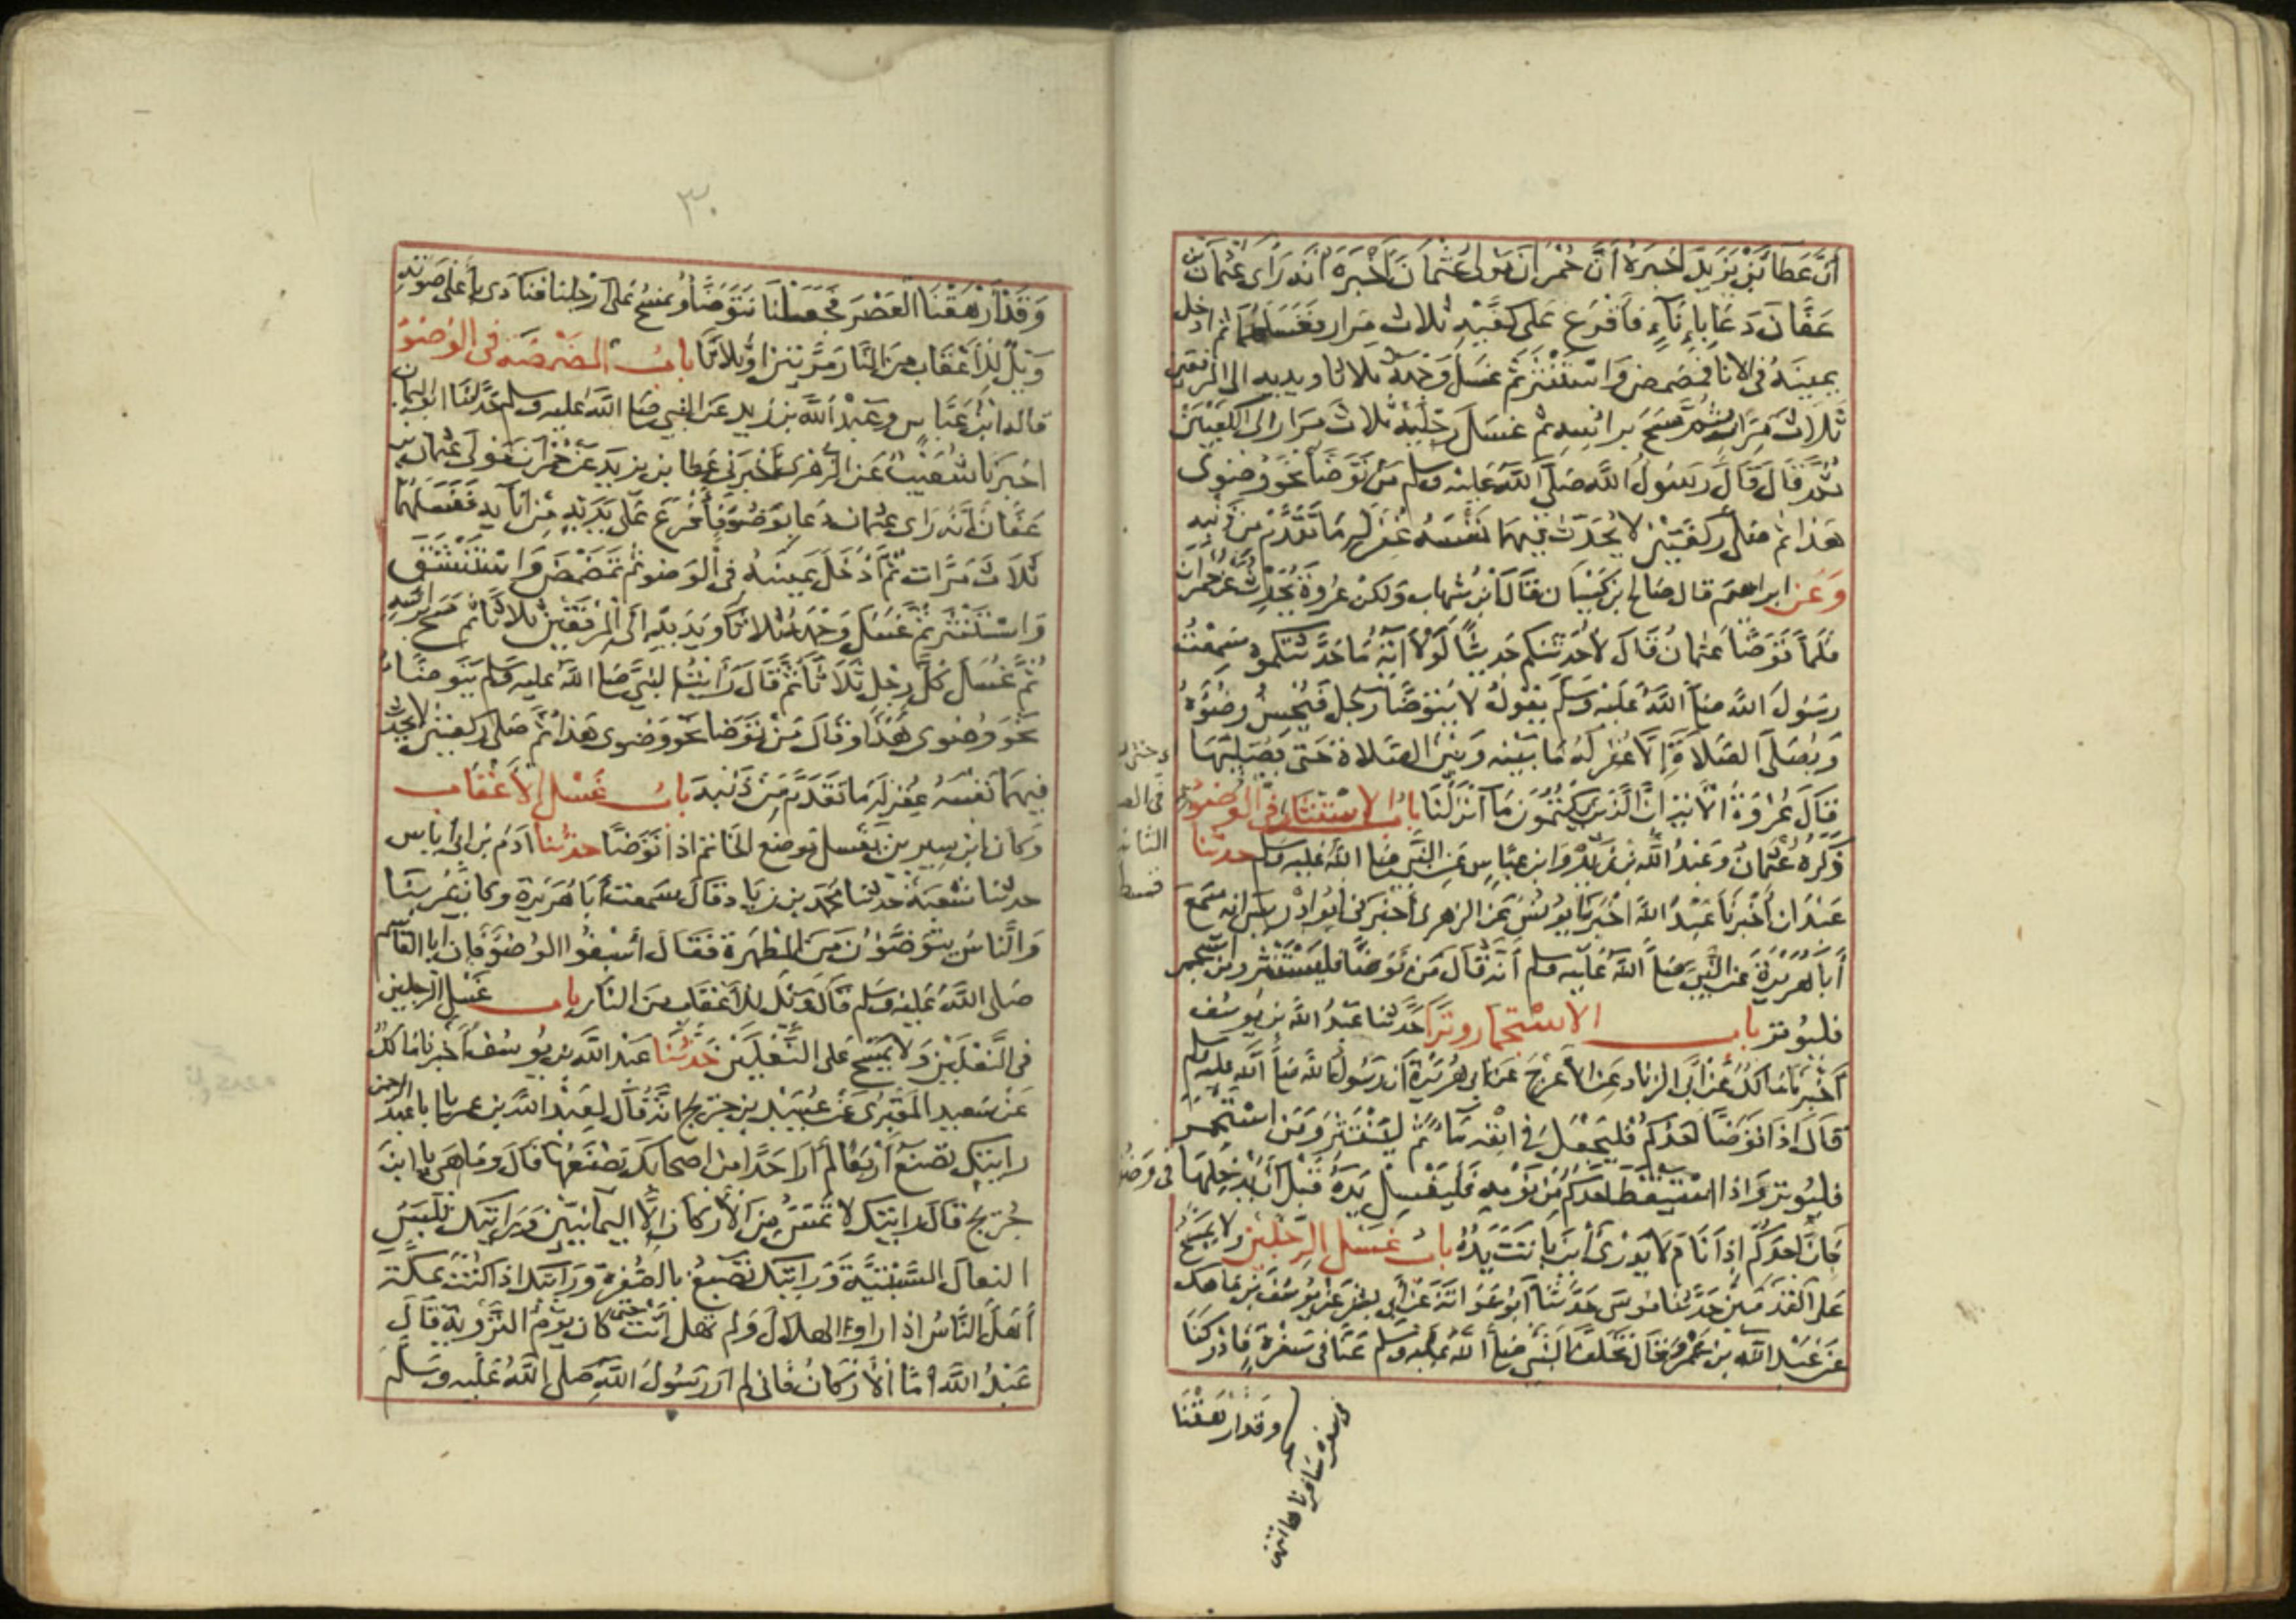 أن عطاء بن يزيد أخبره أن حمران مولى عثمان أخبره أنه رأى عثمان بن
عفان دعا بإناء فأفرغ على كفيه ثلاث مرار فغسلهما ثم ادخل
يمينه في الاناء فمضمض واستنثر ثم غسل وجهه ثلاثا ويديه الى المرفقين
ثلاث مرار ثم مسح برأسه ثم غسل رجليه ثلاث مرار الى الكعبين
ثم قال قال رسول الله صلى الله عليه وسلم من توضأ نحو وضوئى
هذا ثم صلى ركعتين لا يحدث فيهما نفسه غفر له ما تقدم من ذنبه
وعن ابراهيم قال صالح بن كيسان قال ابن شهاب ولكن عروة يحدث عن حمران
فلما توضأ عثمان قال لأحدثنكم حديثا لولا آية ما حدثتكموه سمعت
رسول الله صلى الله عليه وسلم يقول لا يتوضأ رجل فيحسن وضوءه
ويصلى الصلاة إلا غفر له ما بينه وبين الصلاة حتى يصليها
قال عروة الآية ان الذين يكتمون ما أنزلنا باب الاستنثار في الوضوء
ذكره عثمان وعبد الله بن زيد وابن عباس عن النبي صلى الله عليه وسلم حدثنا
عبدان أخبرنا عبد الله اخبرنا يونس عن الزهرى أخبرنى ابو ادريس انه سمع
أبا هريرة عن النبي صلى الله عليه وسلم أنه قال من توضأ فليستنثر ومن استجمر
فليوتر باب الاستجمار وترا حدثنا عبد الله بن يوسف
أخبرنا مالك عن أبي الزناد عن الأعرج عن ابى هريرة أن رسول الله صلى الله عليه وسلم
قال اذا توضأ احدكم فليجعل في انفه ماء ثم لينتثر ومن استجمر
فليوتر واذا استيقظ احدكم من نومه فليغسل يده قبل أن يدخلها فى وضوئه
فإن احدكم إذا نام لا يدرى أين باتت يده باب غسل الرجلين ولا يمسح
على القدمين حدثنا موسى حدثنا أبو عوانة عن أبى بشر عن يوسف بن ماهك
عن عبد الله بن عمرو قال تخلف النبي صلى الله عليه وسلم عنا فى سفرة فادركنا
وقد ارهقنا
فى سفرة سافرناها
٣٠
وقد أرهقنا العصر فجعلنا نتوضأ ونمسح على أرجلنا فنادى بأعلى صوته
ويل للأعقاب من النار مرتين او ثلاثا باب المضمضة فى الوضوء
قاله ابن عباس وعبد الله بن زيد عن النبي صلى الله عليه وسلم حدثنا ابو اليمان
اخبرنا شعيب عن الزهرى أخبرنى عطا بن يزيد عن حمران مولى عثمان بن
عفان أنه رأى عثمان دعا بوضوء فأفرغ على يديه من انائه فغسلهما
ثلاث مرات ثم أدخل يمينه فى الوضوء ثم تمضمض واستنشق
واستنثر ثم غسل وجهه ثلاثا ويديه الى المرفقين ثلاثا ثم مسح برأسه
ثم غسل كل رجل ثلاثا ثم قال رأيت النبي صلى الله عليه وسلم يتوضأ
نحو وضوئى هذا وقال من توضأ نحو وضوئى هذا ثم صلى ركعتين لا يحدث
فيهما نفسه غفر له ما تقدم من ذنبه باب غسل الأعقاب
وكان ابن سيرين يغسل موضع الخاتم اذا توضأ حدثنا آدم بن ابى إياس
حدثنا شعبة حدثنا محمد بن زياد قال سمعت أبا هريرة وكان يمر بنا
والناس يتوضؤن من المطهرة فقال أسبغوا الوضوء فإن ابا القاسم
صلى الله عليه وسلم قال ويل للأعقاب من النار باب غسل الرجلين
فى النعلين ولا يمسح على النعلين حدثنا عبد الله بن يوسف أخبرنا مالك
عن سعيد المقبرى عن عبيد بن جريج انه قال لعبد الله بن عمر يا ابا عبد الرحمن
رايتك تصنع أربعا لم أر احدا من اصحابك يصنعها قال وما هى يا ابن
جريج قال رايتك لا تمس من الأركان إلا اليمانيين ورايتك تلبس
النعال السبتية ورايتك تصبغ بالصفرة ورايتك اذا كنت بمكة
أهل الناس اذا راوا الهلال ولم تهل أنت حتى كان يوم التروية قال
عبد الله أما الأركان فانى لم ار رسول الله صلى الله عليه وسلم